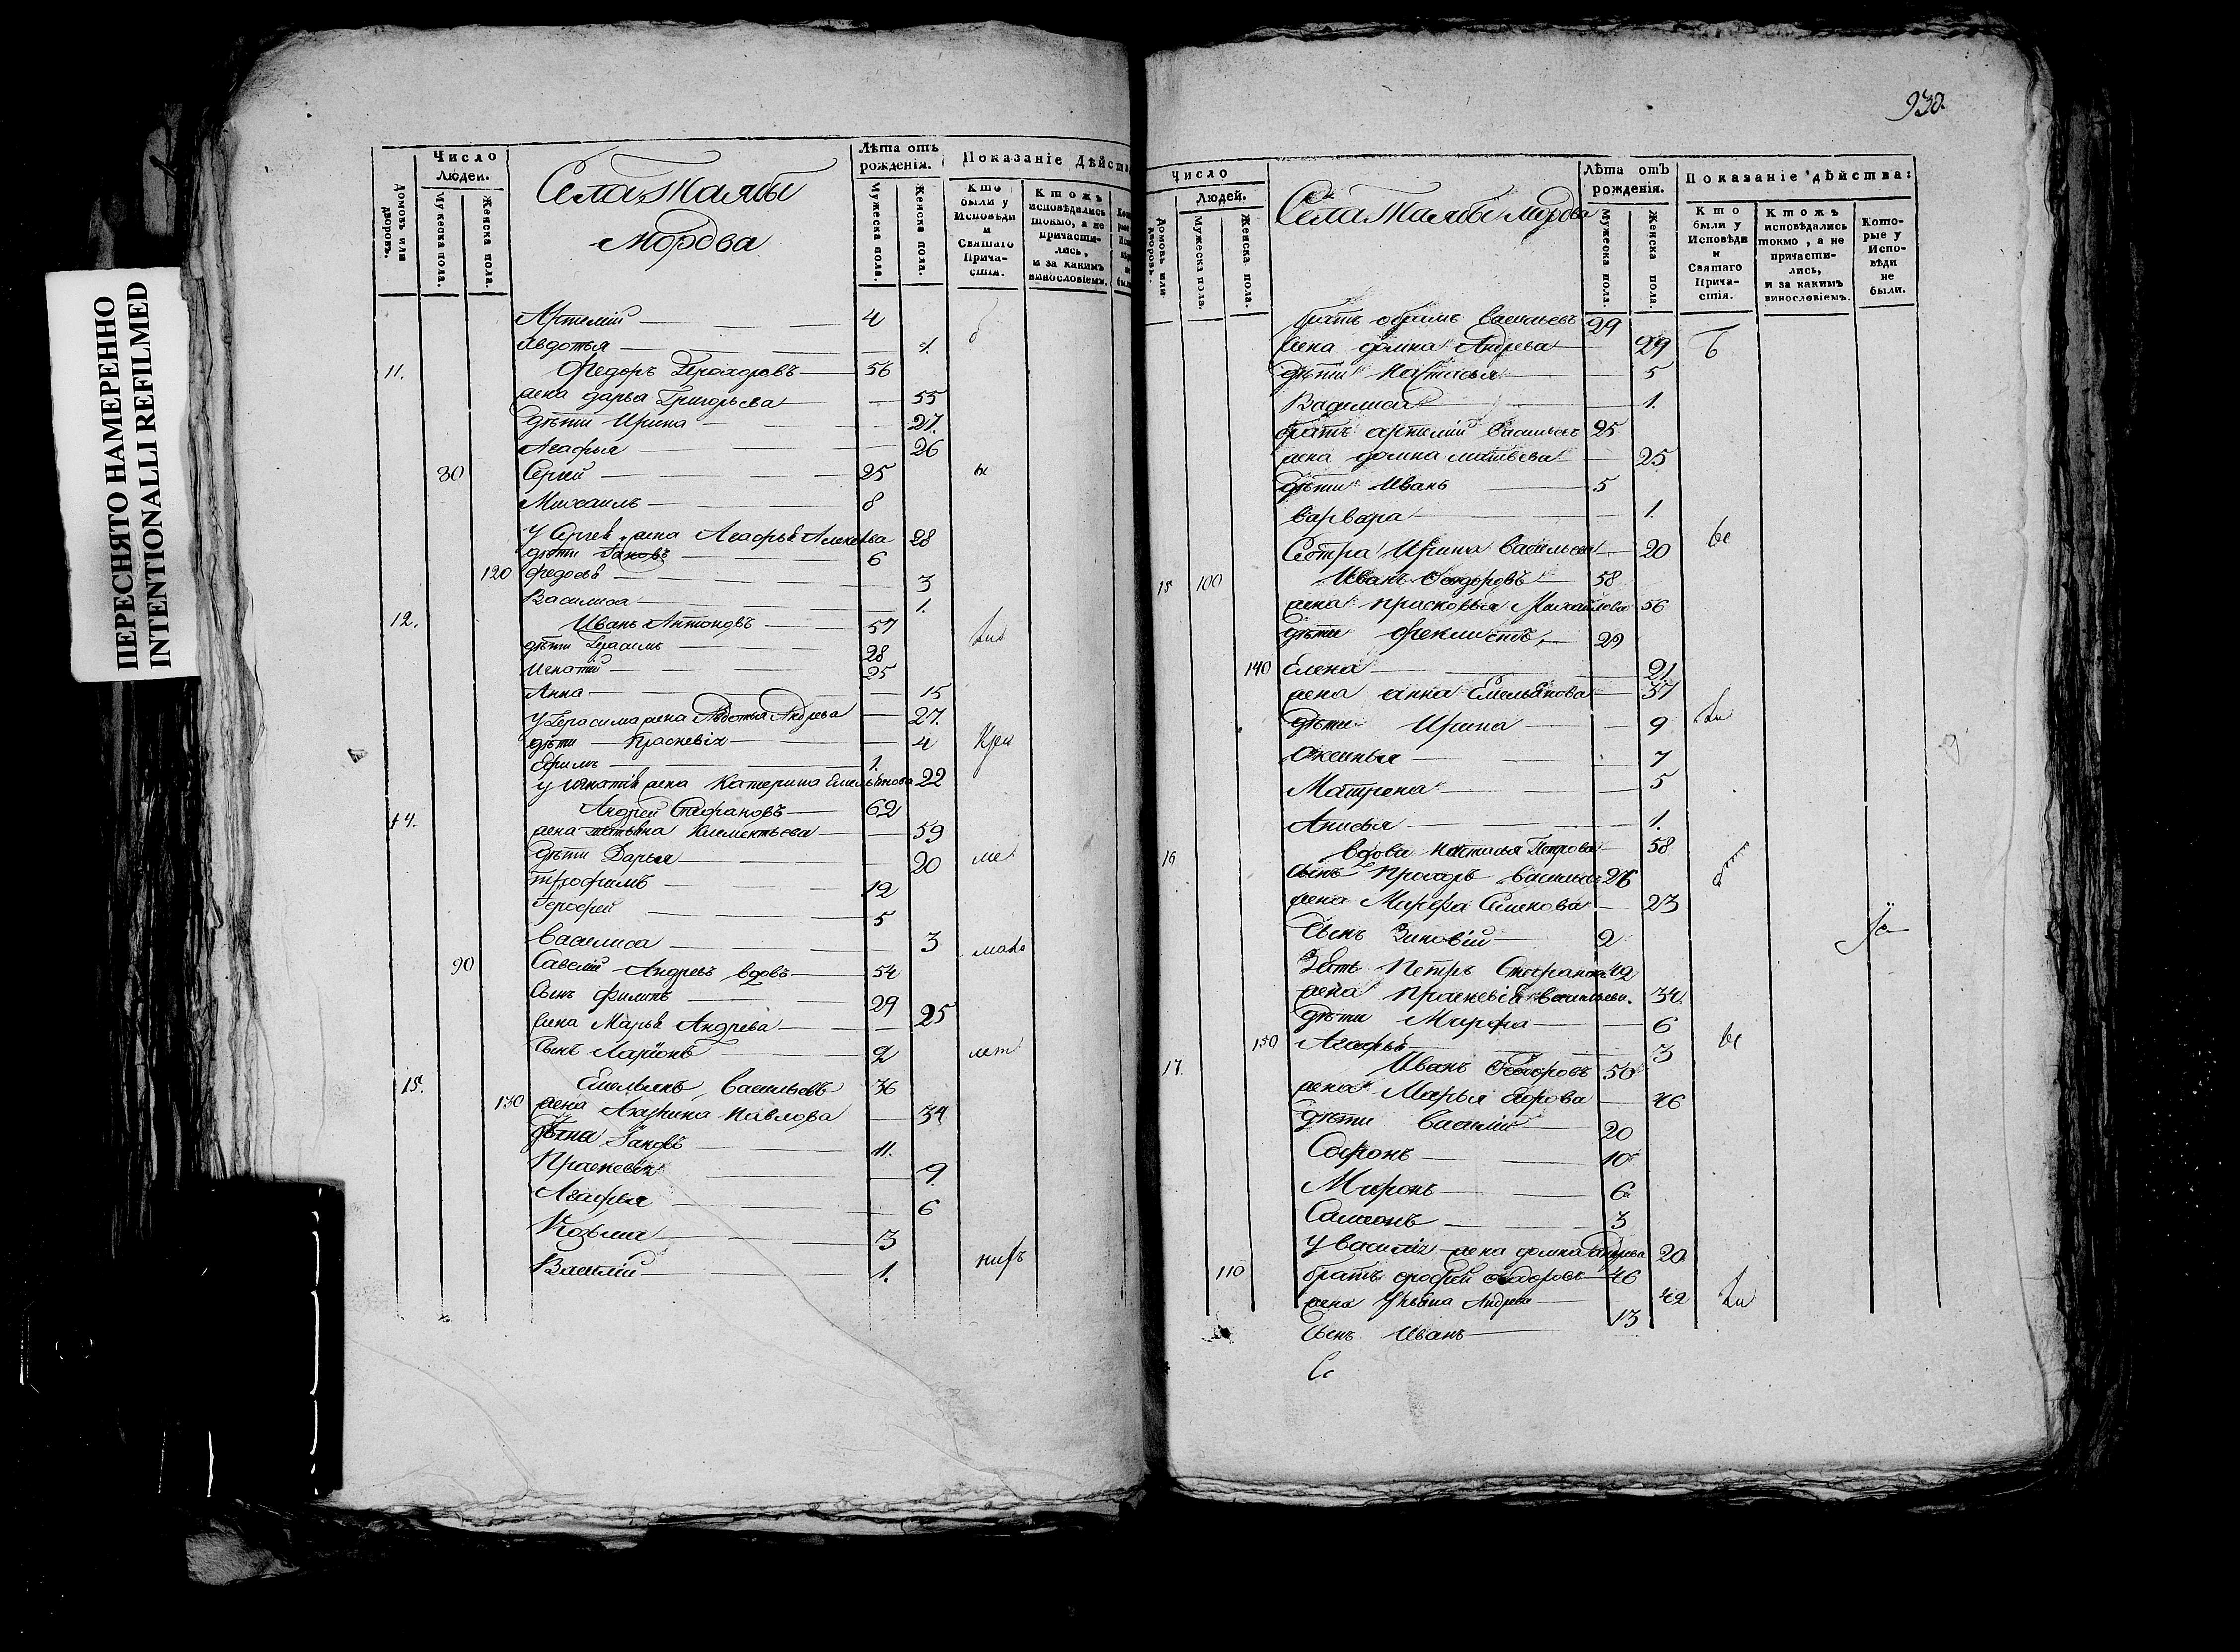 ПЕРЕСНЯТО НАМЕРЕННО
INTENTIONALLI REFILMED
Число
Людей.
Домовъ или дворовъ.
Мужеска пола.
Женска пола.
Села
Мордва
Лѣта отъ рожденія.
Мужеска пола.
Женска пола.
Показаніе Дѣйств
Кто были у Исповѣди и Святаго Причастія.
Ктожъ исповѣдались токмо, а не причастились, и за какимъ винословіемъ.
Артемій 4
Авдотья 1.
11. Федоръ 56
жена дарья Григорьева 55
дѣти Ирина 27.
Агафья 26
80 Сергей 25
Михаилъ 8
У Сергея жена Агафья 28
дѣти Іаковъ 6
120 Федосья 3
Василиса 1.
12. Иванъ Антоновъ 57
дѣти Герасимъ 28
Игнатій 25
Анна 15
У Герасима жена Авдотья Андрева 27.
дѣти Праскевія 4
Ефимъ 1.
у Игнатія жена Катерина Емельянова 22
14. Андрей Стефановъ 62
жена татьяна Климентьева 59
дѣти Дарья 20
трофимъ 12
Герофей 5
Василиса 3
90 Савелій Андревъ вдовъ 54
Сынъ Филипъ 29
жена Марья Андрева 25
Сынъ Ларіонъ 2
15. Емельянъ Васильевъ 36
130 жена Павлова 34
Іаковъ 11.
Праскевія 9
Агафья 6
Козьма 3
Василій 1.
930
Число
Людей.
Домовъ или дворовъ.
Мужеска пола.
Женска пола.
Села Мордва
Лѣта отъ рожденія.
Мужеска пола.
Женска пола.
Показаніе дѣйства:
Кто были у Исповѣди и Святаго Причастія.
Ктожъ исповѣдались токмо, а не причастились, и за какимъ винословіемъ.
Которые у Исповѣди не были.
братъ Васильевъ 29
жена домна Андрева 29
дѣти Настасья 5
Василиса 1.
братъ артемій Васильевъ 25
жена домна матвева 25
дѣти Иванъ 5
Варвара 1.
Сестра Ирина Васильева 20
15 100 Иванъ Феодоровъ 58
жена прасковья Михайлова 56
дѣти 29
140 Елена 21
жена анна Емельянова 37
дѣти Ирина 9
7
Матрена 5
Анисья 1.
16 вдова Настасья Петрова 58
Сынъ Прохоръ Васильевъ 26
жена Марфа Семенова 23
Сынъ Зиновій 2
Зять Петръ Стефановъ 42
жена праскевія Васильева 34.
дѣти Марфа 6
150 Агафья 3
17. Иванъ Феодоровъ 50
жена Марья 46
дѣти Василій 20
Софронъ 10
Миронъ 6
Самсонъ 3
У Василія жена домна 20
110 братъ ерофей феодоровъ 46
жена Ульяна Андрева 42
Сынъ Иванъ 13